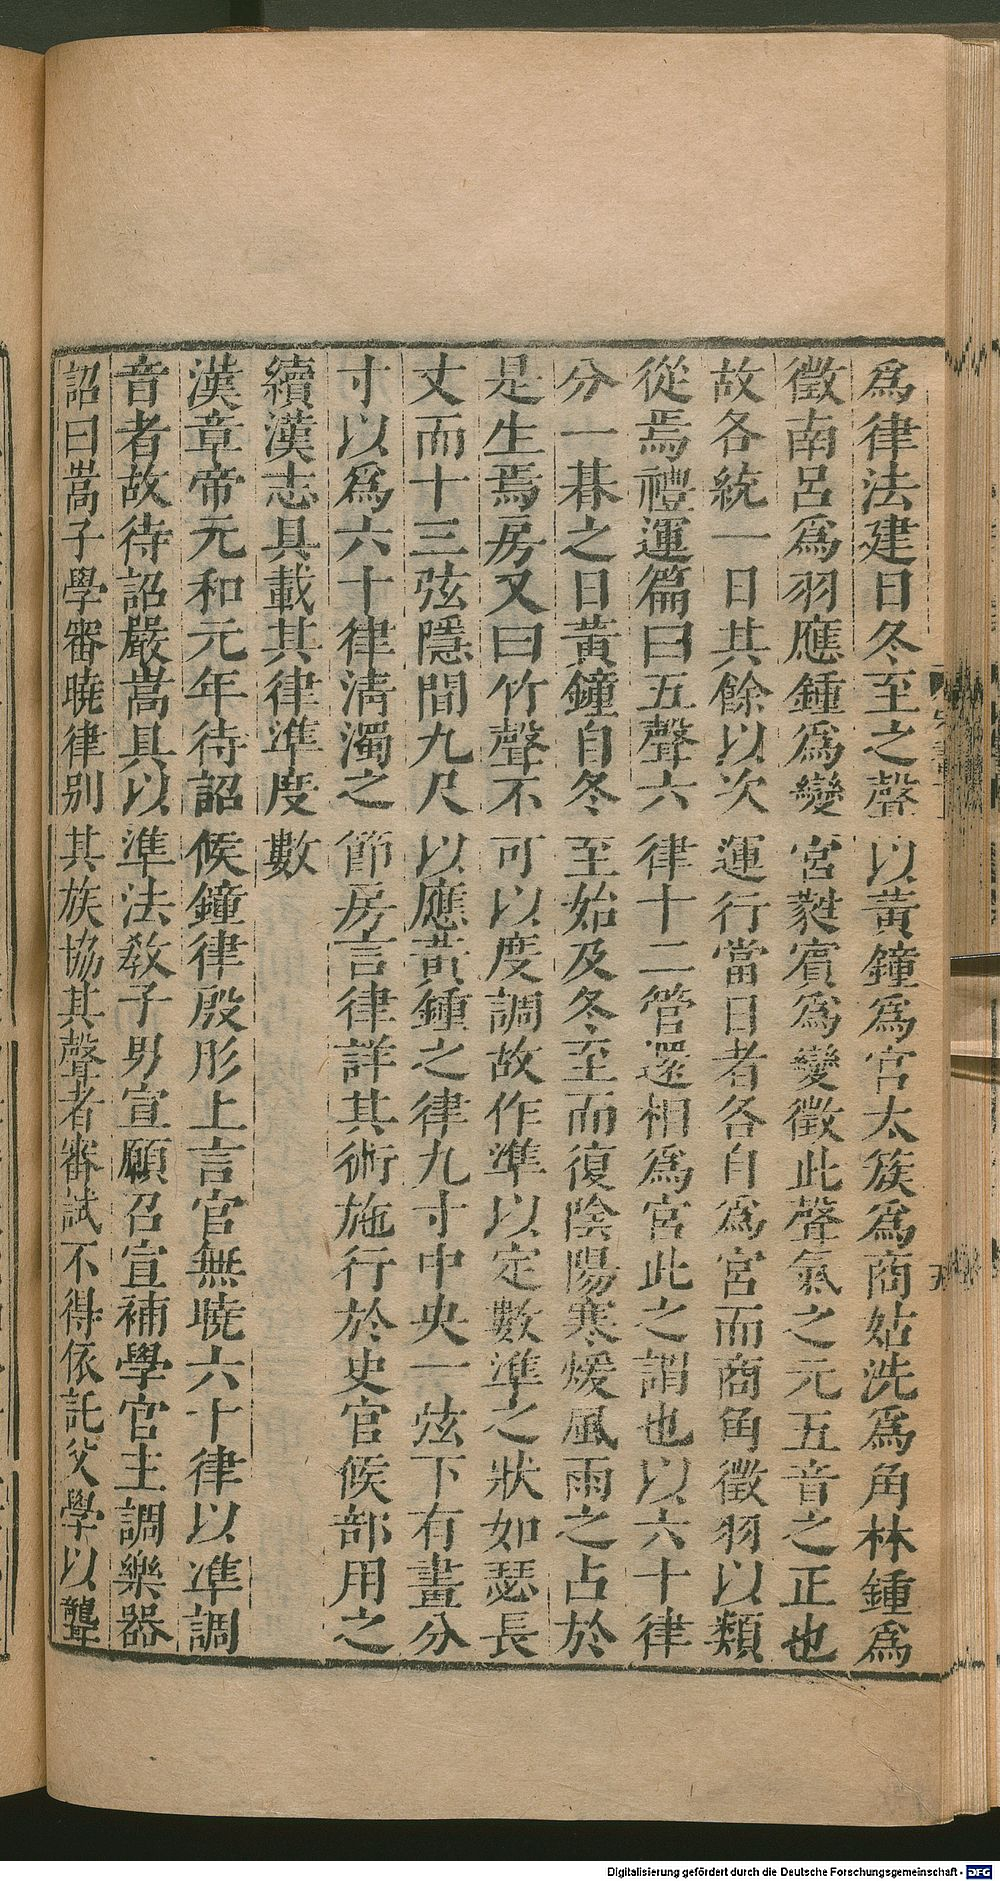 爲律法建日冬至之聲以黃鐘爲宮太簇爲商姑洗爲角林鍾爲
徵南呂爲羽應鍾爲變宮蕤賓爲變徵此聲氣之元五音之正也
故各統一日其餘以次運行當日者各自爲宮而商角徵羽以類
從焉禮運篇曰五聲六律十二管還相爲宮此之謂也以六十律
分一朞之日黃鐘自冬至始及冬至而復陰陽寒煖風雨之占於
是生焉房又曰竹聲不可以度調故作準以定數準之狀如瑟長
丈而十三弦隱間九尺以應黃鍾之律九寸中央一弦下有畫分
寸以爲六十律淸濁之節房言律詳其術施行於史官候部用之
續漢志具載其律準度數
漢章帝元和元年待詔候鐘律殷肜上言官無曉六十律以準調
音者故待詔嚴嵩具以準法教子男宣願召宣補學官主調樂器
詔曰嵩子學審曉律別其族協其聲者審試不得依託父學以聾
Digitalisierung gefördert durch die Deutsche Forschungsgemeinschaft - DFG